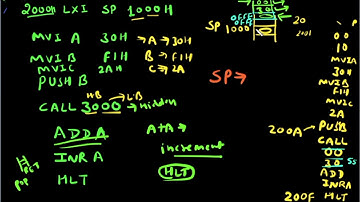 2000H LXI SP 1000H
MVI A 30H → A → 30H
MVI B F1H B → F1H
MVI C 2AH C → 2A
PUSH B
HB LB
CALL 3000 → Hidden
ADD A A+A →
INR A increment
HLT HLT
SP →
SP 1000
00
30
0FFE
0FFF
20
2001
00
MVIA
30
MVIB
F1
MVIC
2A
200A → PUSH
CALL
00
30
ADD
INRA
200F HLT
RET
POP